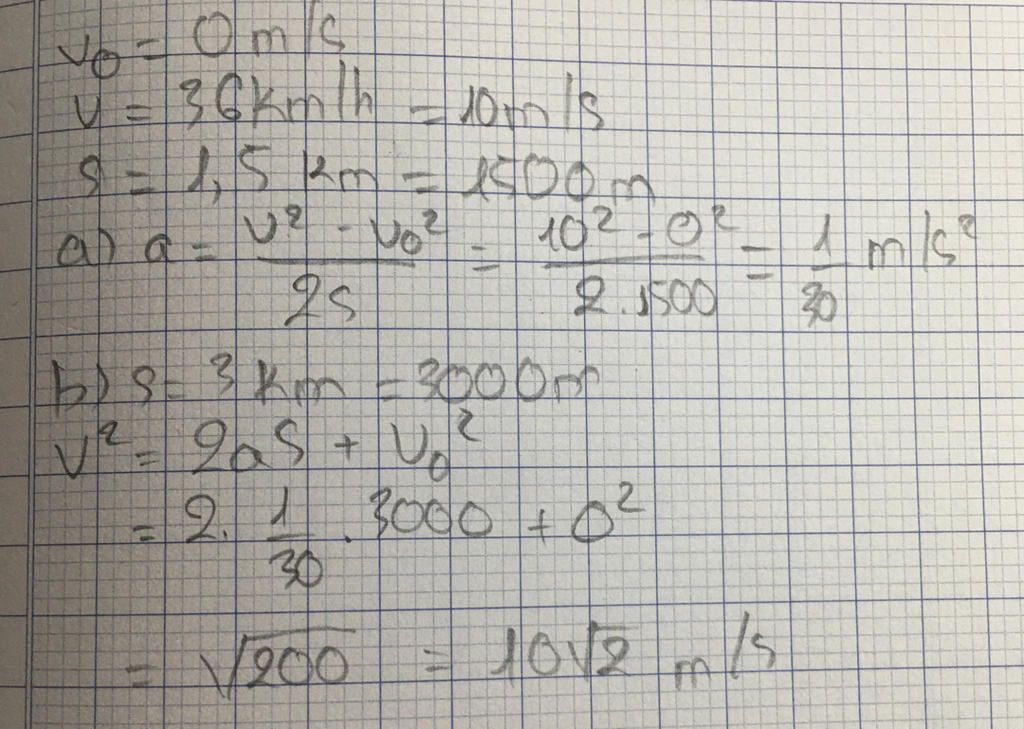 v₀ = 0 m/s
v = 36 km/h = 10 m/s
s = 1,5 km = 1500 m
a) a = (v² - v₀²)/(2s) = (10² - 0²)/(2.1500) = 1/30 m/s²
b) s = 3 km = 3000 m
v² = 2aS + v₀²
= 2. 1/30 . 3000 + 0²
= √200 = 10√2 m/s